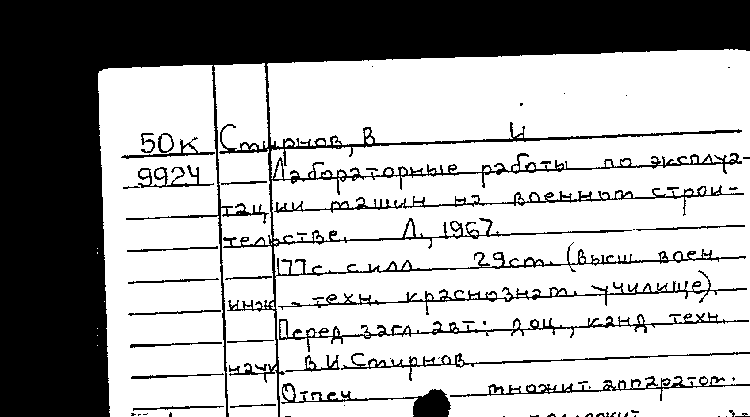 50к Смирнов, В И
9924 Лабораторные работы по эксплуа-
тации машин на военном строи-
тельстве. Л., 1967.
177с. с илл. 29см. (Высш. воен.
инж. - техн. краснознам. училище).
Перед загл. авт.: доц., канд. техн.
наук В.И.Смирнов.
Отпеч. множит. аппаратом.